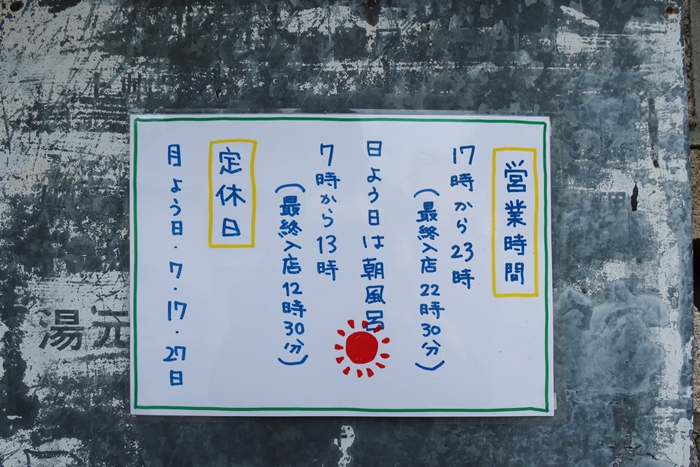 営業時間
17時から23時
(最終入店22時30分)
日よう日は朝風呂
7時から13時
(最終入店12時30分)
定休日
月よう日・7・17・27日
湯元